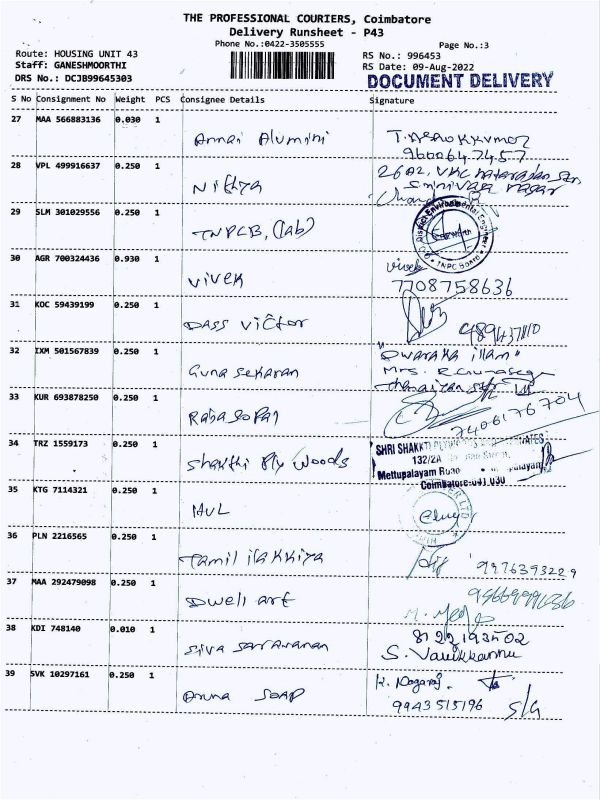 THE PROFESSIONAL COURIERS, Coimbatore
Delivery Runsheet - P43
Phone No.:0422-3505555
Page No.:3
Route: HOUSING UNIT 43
RS No.: 996453
Staff: GANESHMOORTHI
RS Date: 09-Aug-2022
DRS No.: DCJB99645303
DOCUMENT DELIVERY
S No Consignment No Weight PCS Consignee Details Signature
27 MAA 566883136 0.030 1
Annai Alumini T. Ashokkumar
9600647457
28 VPL 499916637 0.250 1
Nithya 2602, VKC Natarajan
Srinivasa nagar
29 SLM 301029556 0.250 1
TNPCB, (lab) District Environmental Engineer
TNPC Board
30 AGR 700324436 0.930 1
Vivek Vivek
7708758636
31 KOC 59439199 0.250 1
Dass Victor
32 IXM 501567839 0.250 1
Guna Sekaran "Dwaraka illam"
Mrs.
33 KUR 693878250 0.250 1
Rajagopal 7406176704
34 TRZ 1559173 0.250 1
Shakthi Ply Woods SHRI SHAKTHI
132/2A
Mettupalayam Road
Coimbatore-641 030
35 KTG 7114321 0.250 1
HUL
36 PLN 2216565 0.250 1
Tamil ilakkiya 9976393229
37 MAA 292479098 0.250 1
Dweli art
38 KDI 748140 0.010 1
Siva Saravanan 8122193502
39 SVK 10297161 0.250 1
Aruna SOAP K. Nagaraj
9943515196